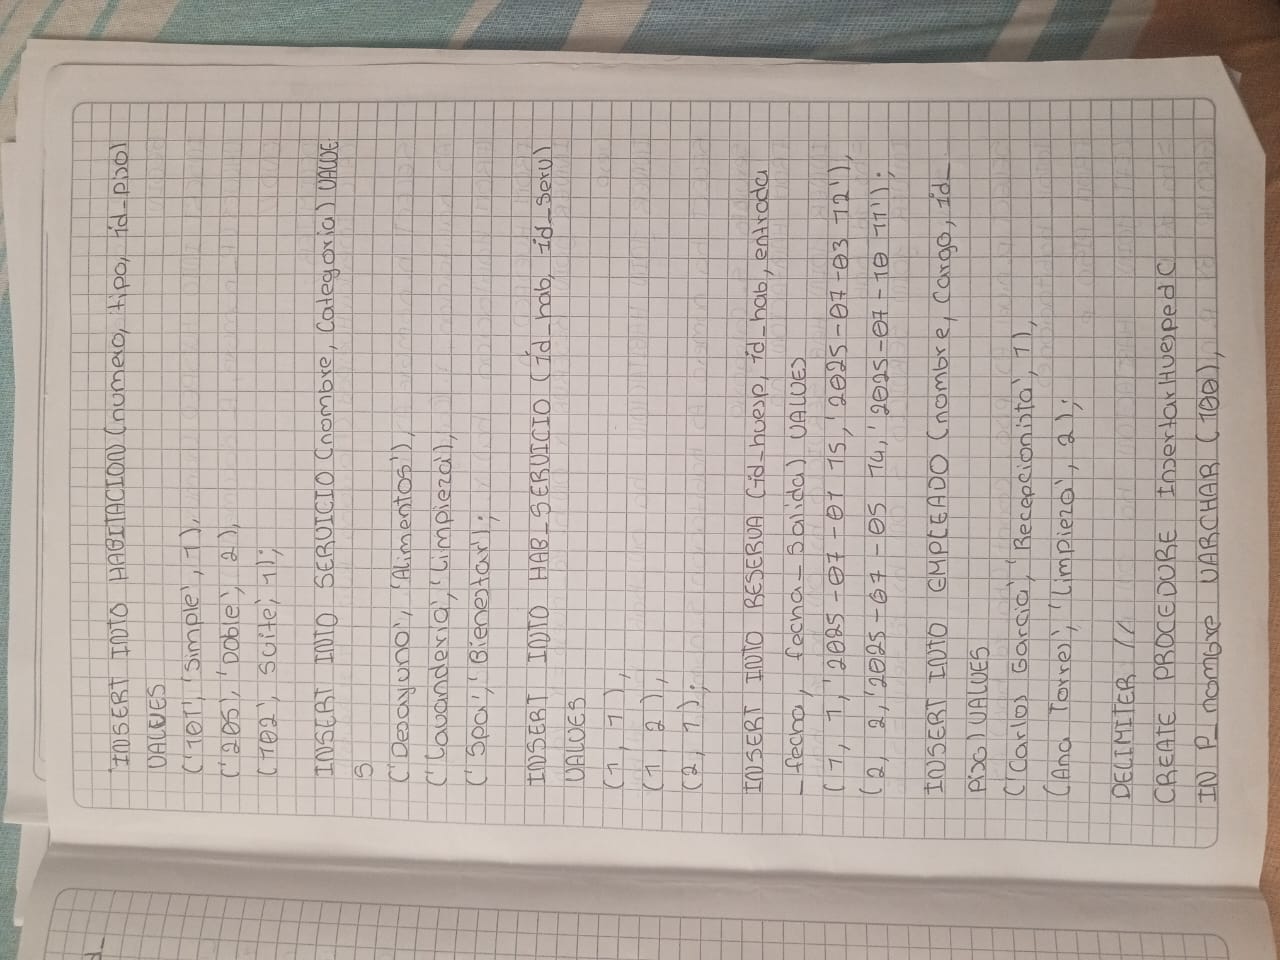 INSERT INTO HABITACION (numero, tipo, id_piso)
VALUES
('101', 'Simple', 1),
('205', 'Doble', 2),
('102', Suite', 1);
INSERT INTO SERVICIO (nombre, Categoria) VALUE
S
('Desayuno', 'Alimentos'),
('Lavanderia', 'Limpieza'),
('Spa', 'Bienestar');
INSERT INTO HAB_SERVICIO (id_hab, id_serv)
VALUES
(1, 1),
(1, 2),
(2, 1);
INSERT INTO RESERVA (id_huesp, id_hab, entrada
_fecha, fecha_Salida) VALUES
(1, 1, '2025-07-01 15, '2025-07-03 12'),
(2, 2, '2025-07-05 14, '2025-07-10 11');
INSERT INTO EMPLEADO (nombre, Cargo, id_
Piso) VALUES
('Carlos Garcia', 'Recepcionista', 1),
(Ana Torres', 'Limpieza', 2);
DELIMITER //
CREATE PROCEDURE InsertarHuespedC
IN P_nombre VARCHAR (100),